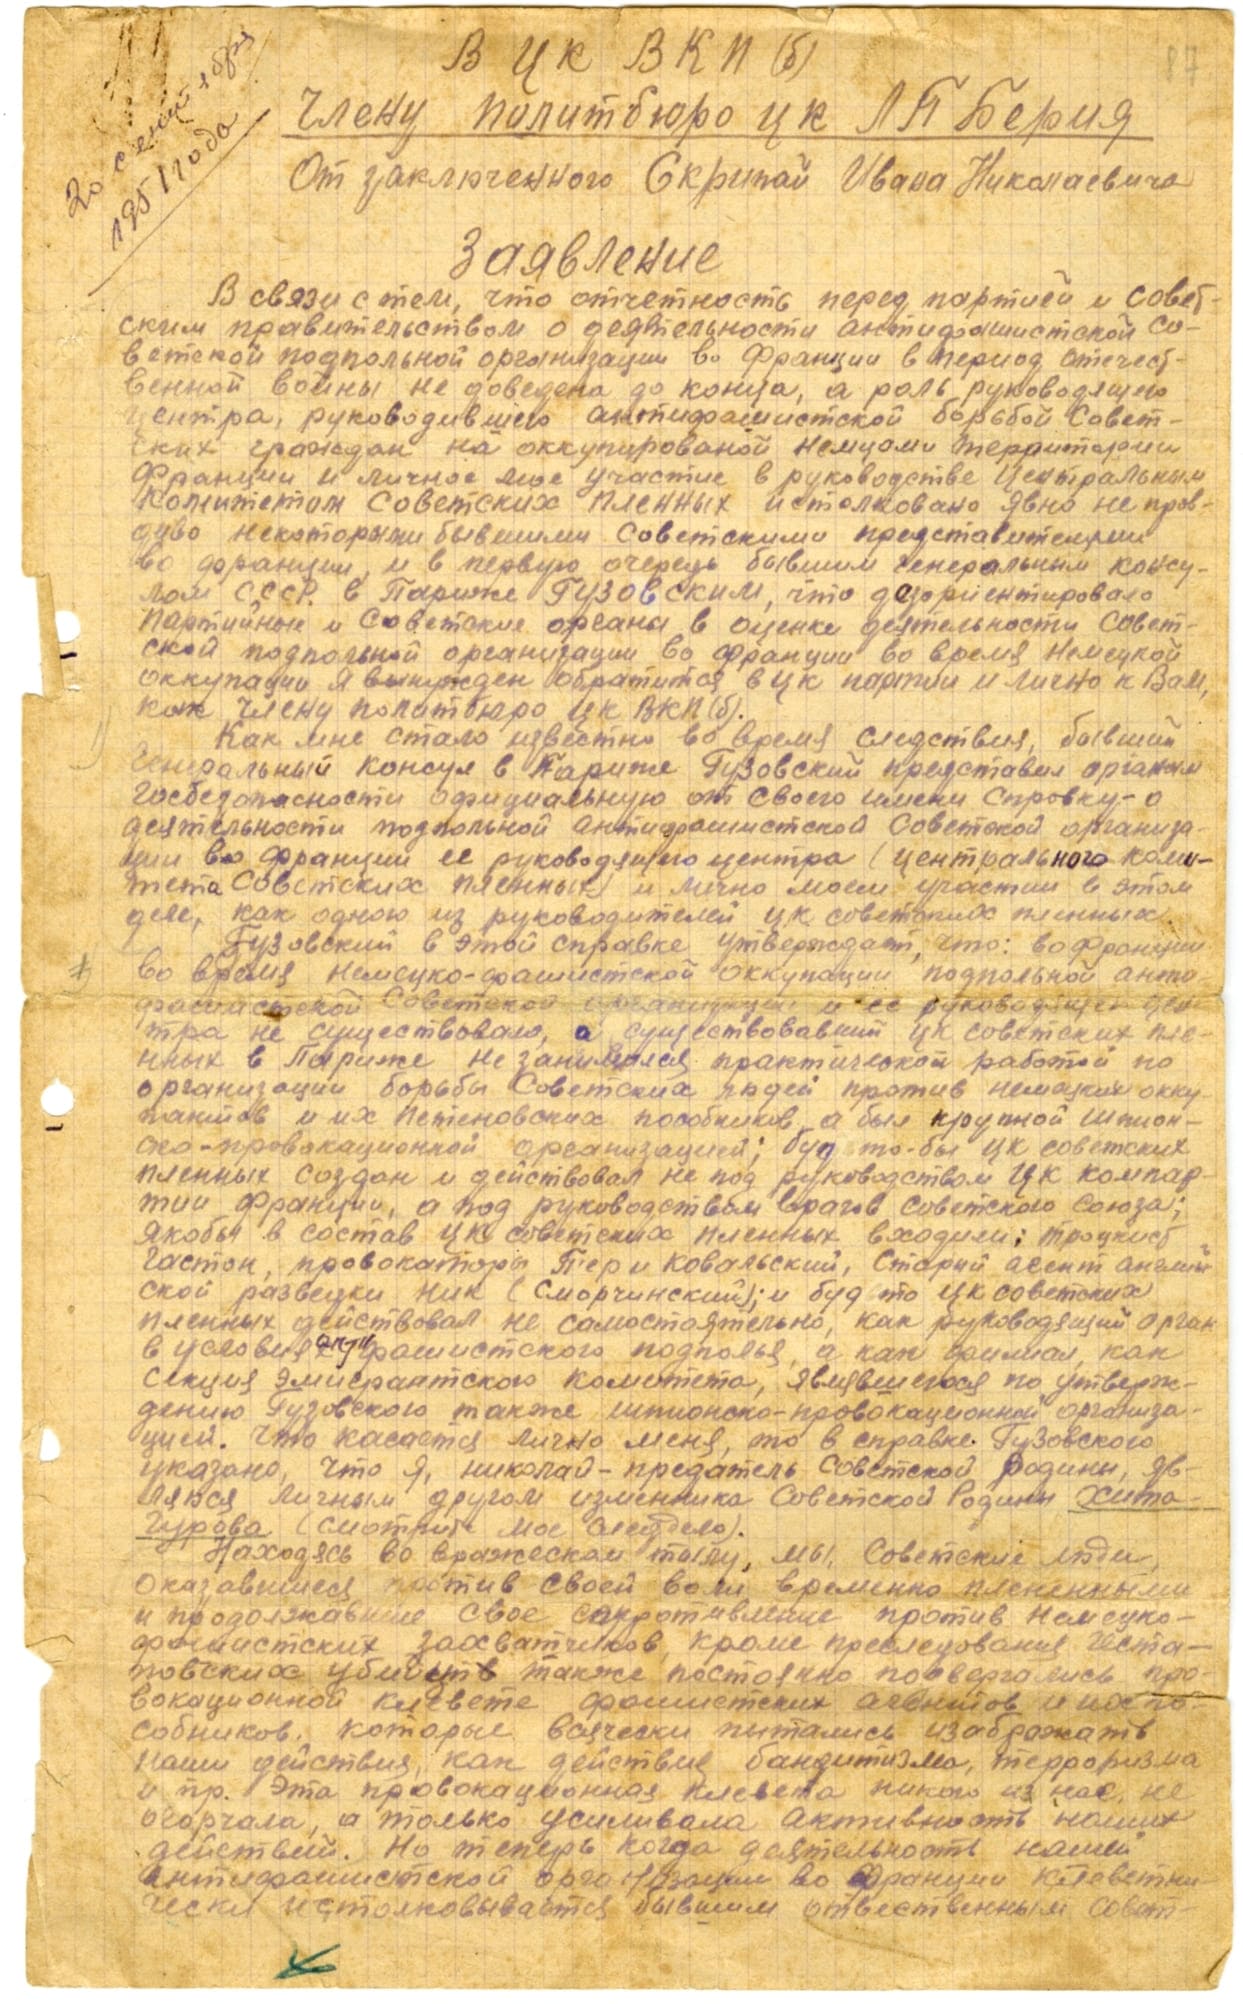 87
20 сентября
1951 года
В ЦК ВКП(б)
Члену Политбюро ЦК Л П Берия
От заключенного Скрипай Ивана Николаевича
Заявление
В связи с тем, что отчетность перед партией и Совет-
ским правительством о деятельности антифашистской Со-
ветской подпольной организации во Франции в период Отечест-
венной войны не доведена до конца, а роль руководящего
центра, руководившего антифашистской борьбой Совет-
ских граждан на оккупированой немцами территории
Франции и личное мое участие в руководстве Центральным
Комитетом Советских Пленных истолковано явно не прав-
диво некоторыми бывшими Советскими представителями
во Франции, и в первую очередь бывшим генеральным консу-
лом СССР в Париже Гузовским, что дезориентировало
Партийные и Советские органы в оценке деятельности Совет-
ской подпольной организации во Франции во время немецкой
оккупации Я вынужден обратится в ЦК партии и лично к Вам,
как члену политбюро ЦК ВКП(б).
1)
Как мне стало известно во время следствия, бывший
генеральный консул в Париже Гузовский представил органам
госбезопасности официальную от своего имени справку-о
деятельности подпольной антифашистской Советской организа-
ции во Франции ее руководящего центра (Центрального коми-
тета Советских пленных) и лично моем участии в этом
деле, как одного из руководителей ЦК советских пленных.
Гузовский в этой справке утверждает, что: во Франции
во время немецко-фашистской оккупации подпольной анти-
фашистской Советской организации и ее руководящего цен
тра не существовало, а существовавший ЦК советских пле-
нных в Париже не занимался практической работой по
организации борьбы Советских людей против немецких окку-
пантов и их Петеновских пособников, а был крупной шпион-
ско-провокационной организацией; буд то-бы ЦК советских
пленных создан и действовал не под руководством ЦК Компар-
тии Франции, а под руководством врагов Советского Союза;
якобы в состав ЦК советских пленных входили: троцкист
Гастон, провокаторы Пер и Ковальский, старый агент англий
ской разведки Ник (Сморчинский); и буд то ЦК советских
пленных действовал не самостоятельно, как руководящий орган
в условиях антифашистского подполья, а как филиал, как
секция эмигрантского комитета, являвшегося по утверж-
дению Гузовского также шпионско-провокационной организа-
цией. Что касается лично меня, то в справке Гузовского
указано, что я, Николай-предатель Советской Родины, яв-
ляюся личным другом изменника Советской Родины Хета-
гурова (Смотрите мое следдело).
Находясь во вражеском тылу, мы, Советские люди,
оказавшиеся против своей воли временно плененными
и продолжавшие свое сопротивление против немецко-
фашистских захватчиков, кроме преследования геста-
повских убийц также постоянно подвергались про-
вокационной клевете фашистских агентов и их по-
собников, которые всячески пытались изображать
наши действия, как действие бандитизма, терроризма
и пр. Эта провокационная клевета никого из нас не
огорчала, а только усиливала активность наших
действий. Но теперь когда деятельность нашей
антифашистской организации во Франции клеветни-
чески истолковывается бывшим ответственным совет-